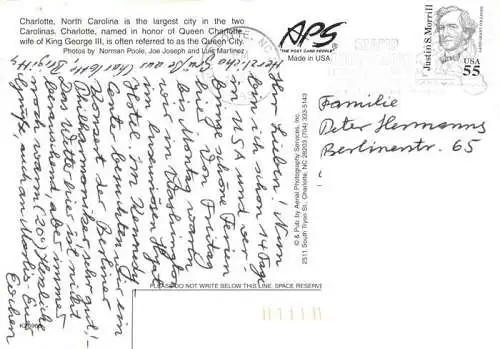 Charlotte, North Carolina is the largest city in the two
Carolinas. Charlotte, named in honor of Queen Charlotte,
wife of King George III, is often referred to as the Queen City.
Photos by Norman Poole, Joe Joseph and Luis Martinez
APS
"THE POST CARD PEOPLE"
Made in USA
Justin S. Morrill
USA
55
Herzliche Grüße aus Charlotte, Brigitte
Ihr Lieben! Nun
bin ich schon 14 Tage
in USA und ver-
bringe schöne Ferien
hier. Von Freitag
bis Montag waren
wir in Washington
im
Hotel im Kennedy
Center besuchten wir ein
Konzert der Berliner
Philharmoniker sehr gut!
Das Wetter hier ist nicht
berauschend aber immer
warm (20°) Herzliche
Grüße auch an
Familie
Peter Hermanns
Berlinerstr. 65
© & Pub by Aerial Photography Services, Inc.
2511 South Tryon St., Charlotte, NC 28203 (704) 333-5143
PLEASE DO NOT WRITE BELOW THIS LINE. SPACE RESERVE